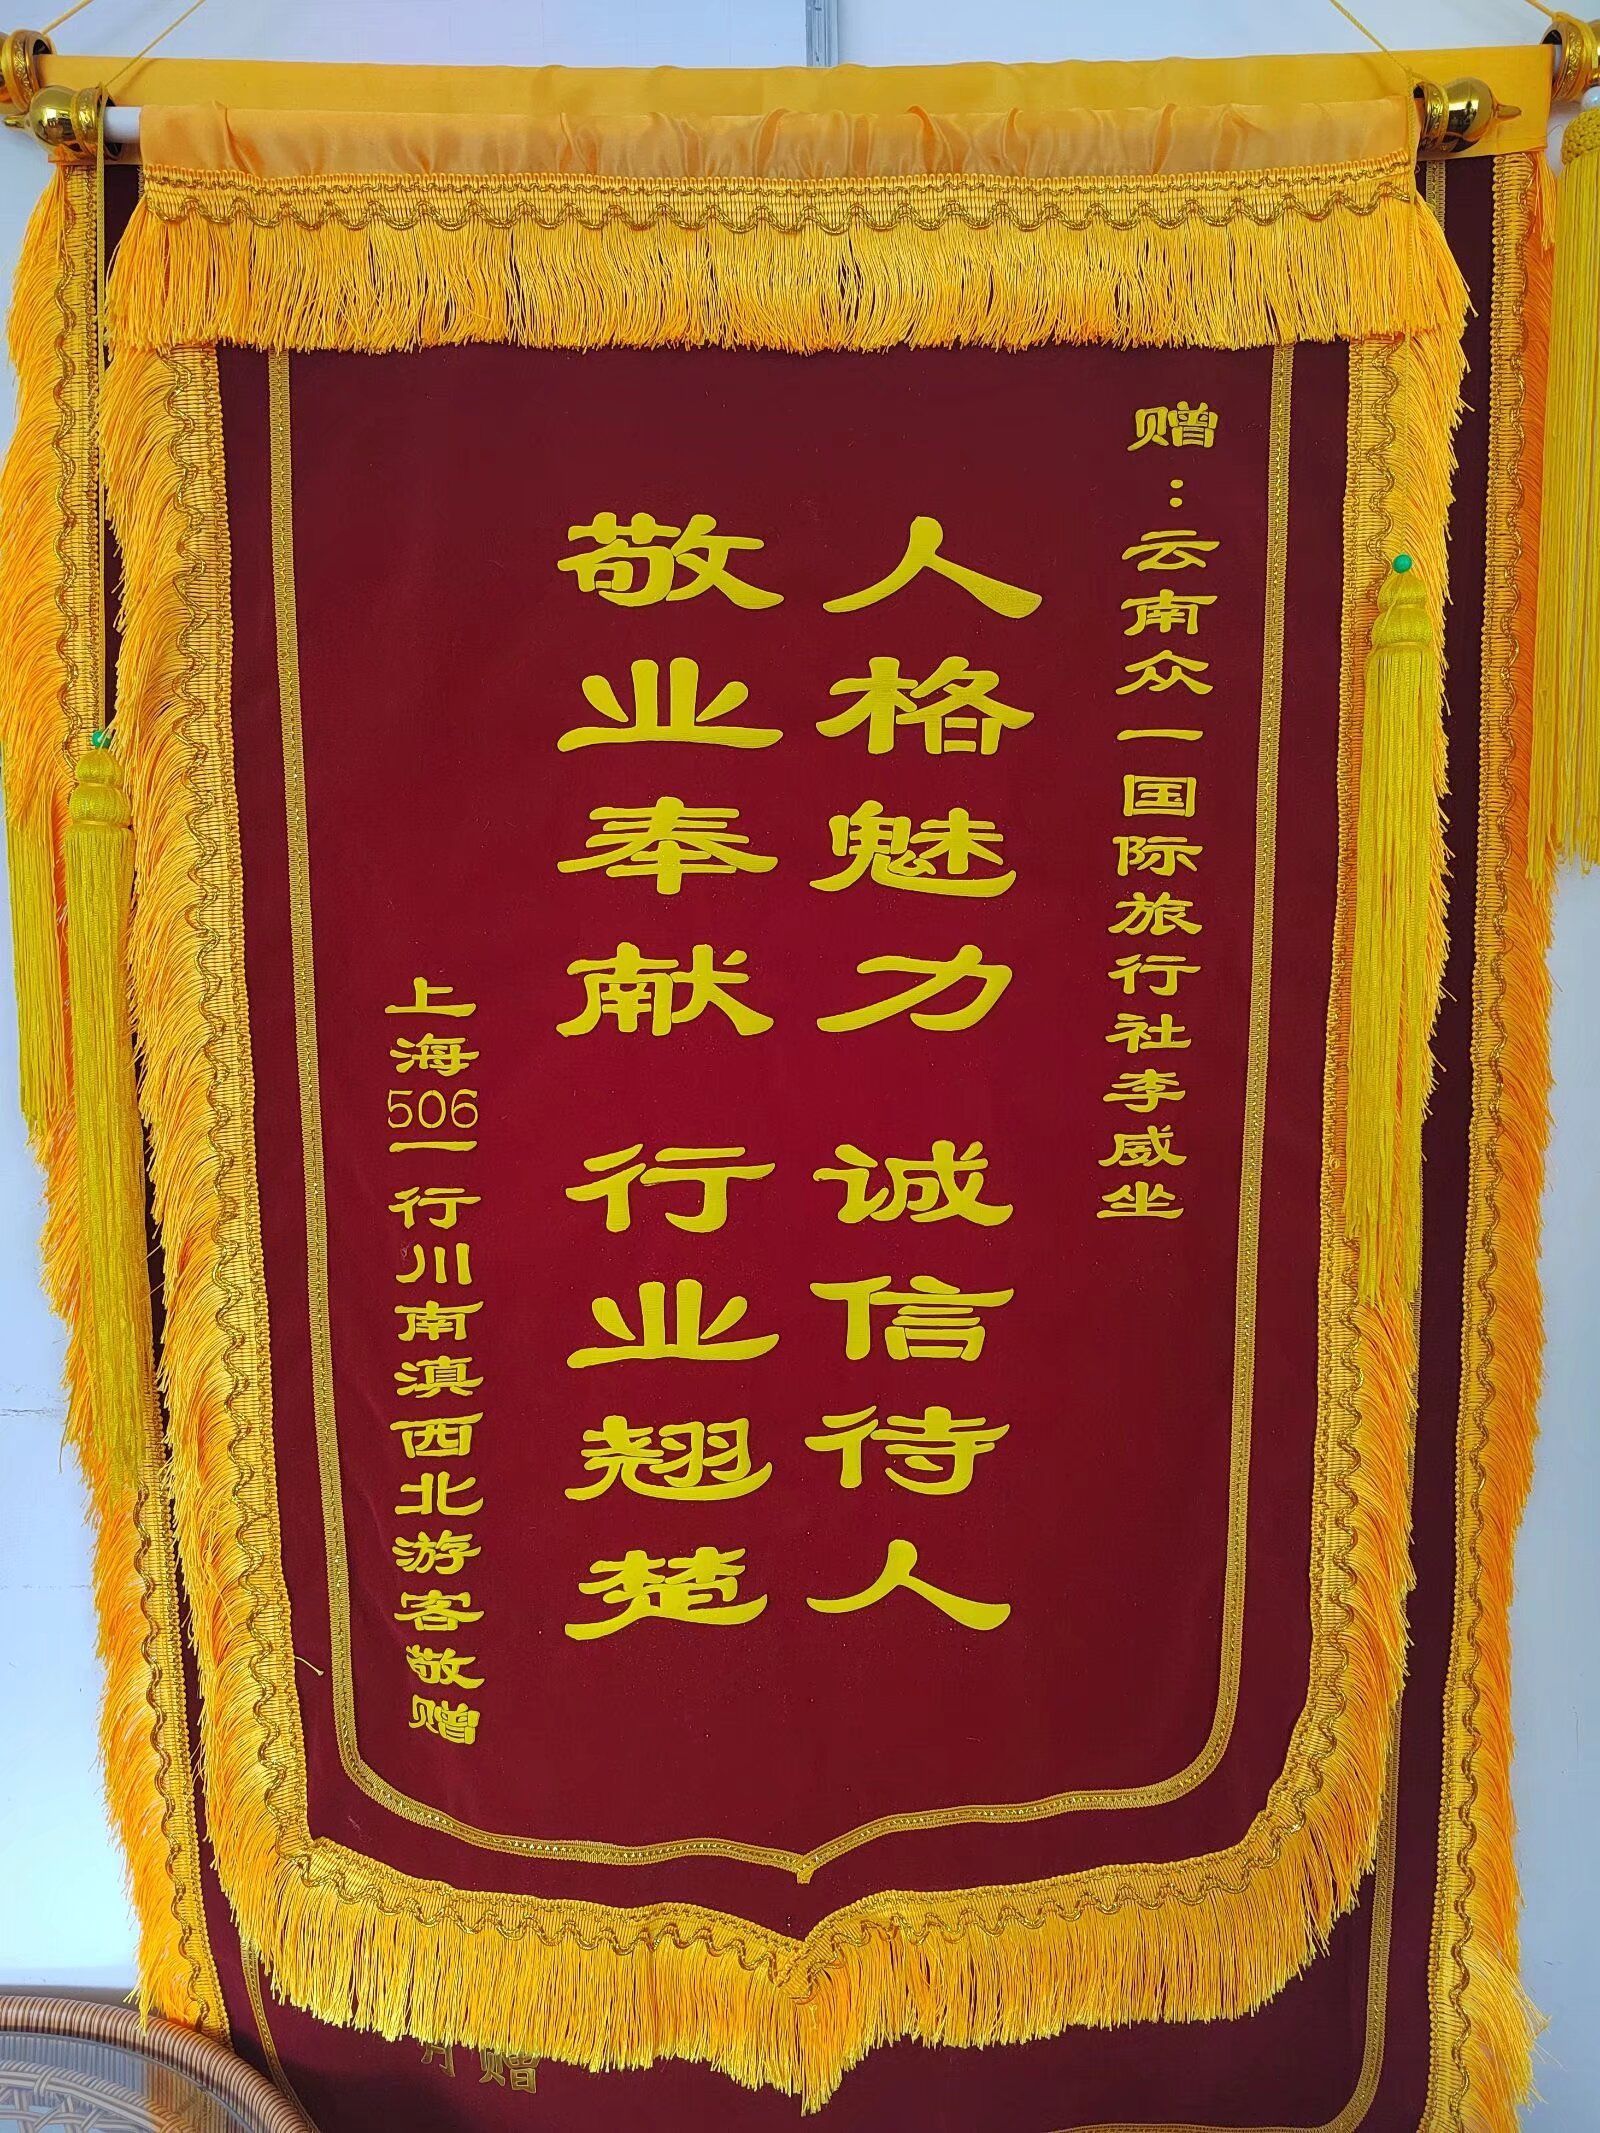 赠：云南众一国际旅行社李威坐
人格魅力 诚信待人
敬业奉献 行业翘楚
上海506一行川南滇西北游客敬赠
月赠